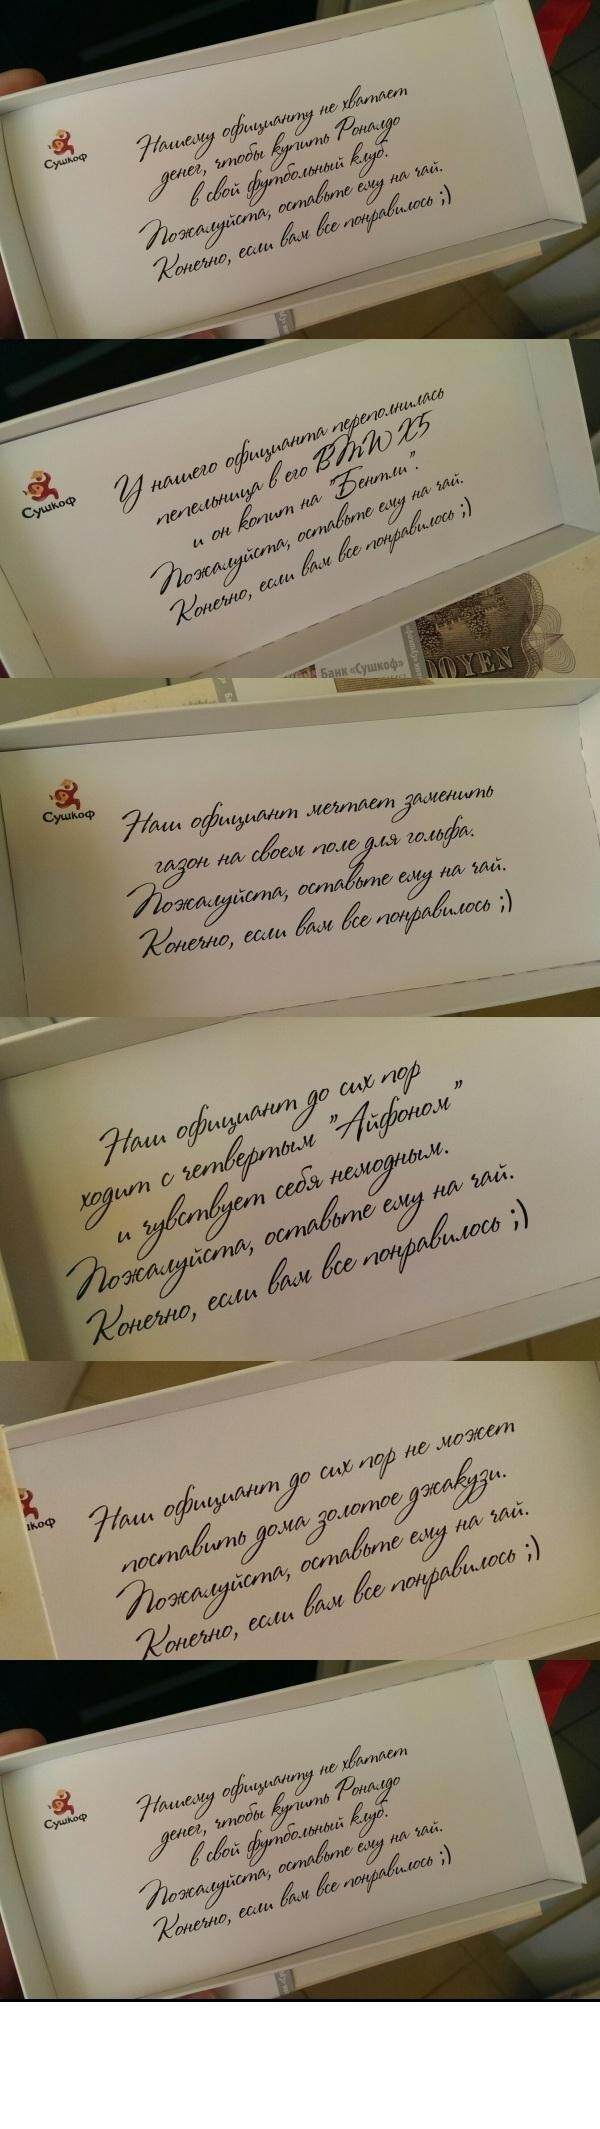 Сушкоф
Нашему официанту не хватает
денег, чтобы купить Роналдо
в свой футбольный клуб.
Пожалуйста, оставьте ему на чай.
Конечно, если вам все понравилось ;)
Сушкоф
У нашего официанта переполнилась
пепельница в его BMW X5
и он копит на "Бентли".
Пожалуйста, оставьте ему на чай.
Конечно, если вам все понравилось ;)
Банк «Сушкоф»
OOYEN
Сушкоф
Наш официант мечтает заменить
газон на своем поле для гольфа.
Пожалуйста, оставьте ему на чай.
Конечно, если вам все понравилось ;)
Наш официант до сих пор
ходит с четвертым "Айфоном"
и чувствует себя немодным.
Пожалуйста, оставьте ему на чай.
Конечно, если вам все понравилось ;)
шкоф
Наш официант до сих пор не может
поставить дома золотое джакузи.
Пожалуйста, оставьте ему на чай.
Конечно, если вам все понравилось ;)
Сушкоф
Нашему официанту не хватает
денег, чтобы купить Роналдо
в свой футбольный клуб.
Пожалуйста, оставьте ему на чай.
Конечно, если вам все понравилось ;)